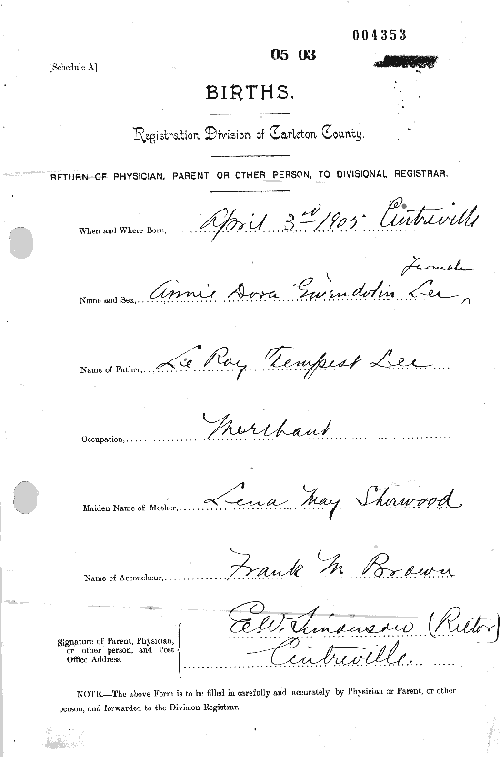 004353
05 03
[Schedule A]
BIRTHS.
Registration Division of Carleton County.
RETURN OF PHYSICIAN, PARENT OR OTHER PERSON, TO DIVISIONAL REGISTRAR.
When and Where Born, April 3rd 1905 Centreville
Female
Name and Sex, Annie Dora Gwendolin Lee
Name of Father, Le Roy Tempest Lee
Occupation, Merchant
Maiden Name of Mother, Lena May Sherwood
Name of Accoucheur, Frank M Brown
Signature of Parent, Physician, or other person, and Post Office Address
E.W. Simonson (Rector)
Centreville.
NOTE.—The above Form is to be filled in carefully and accurately by Physician or Parent, or other
person, and forwarded to the Division Registrar.